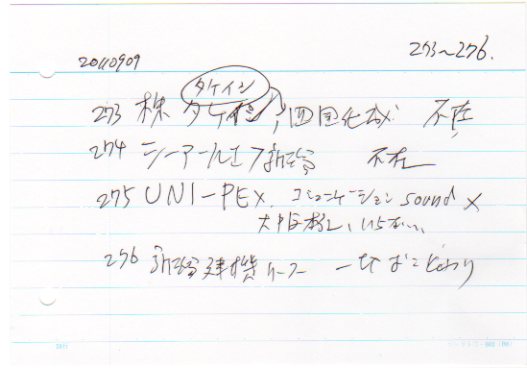 273〜276.
20110909
タケイン
273 株 タケイン, 四国化成 不在
274 シーアールエフ新宮 不在
275 UNI-PEX. コミュニケーション sound ×
大阪 いらない
276 建機リース 一切おことわり